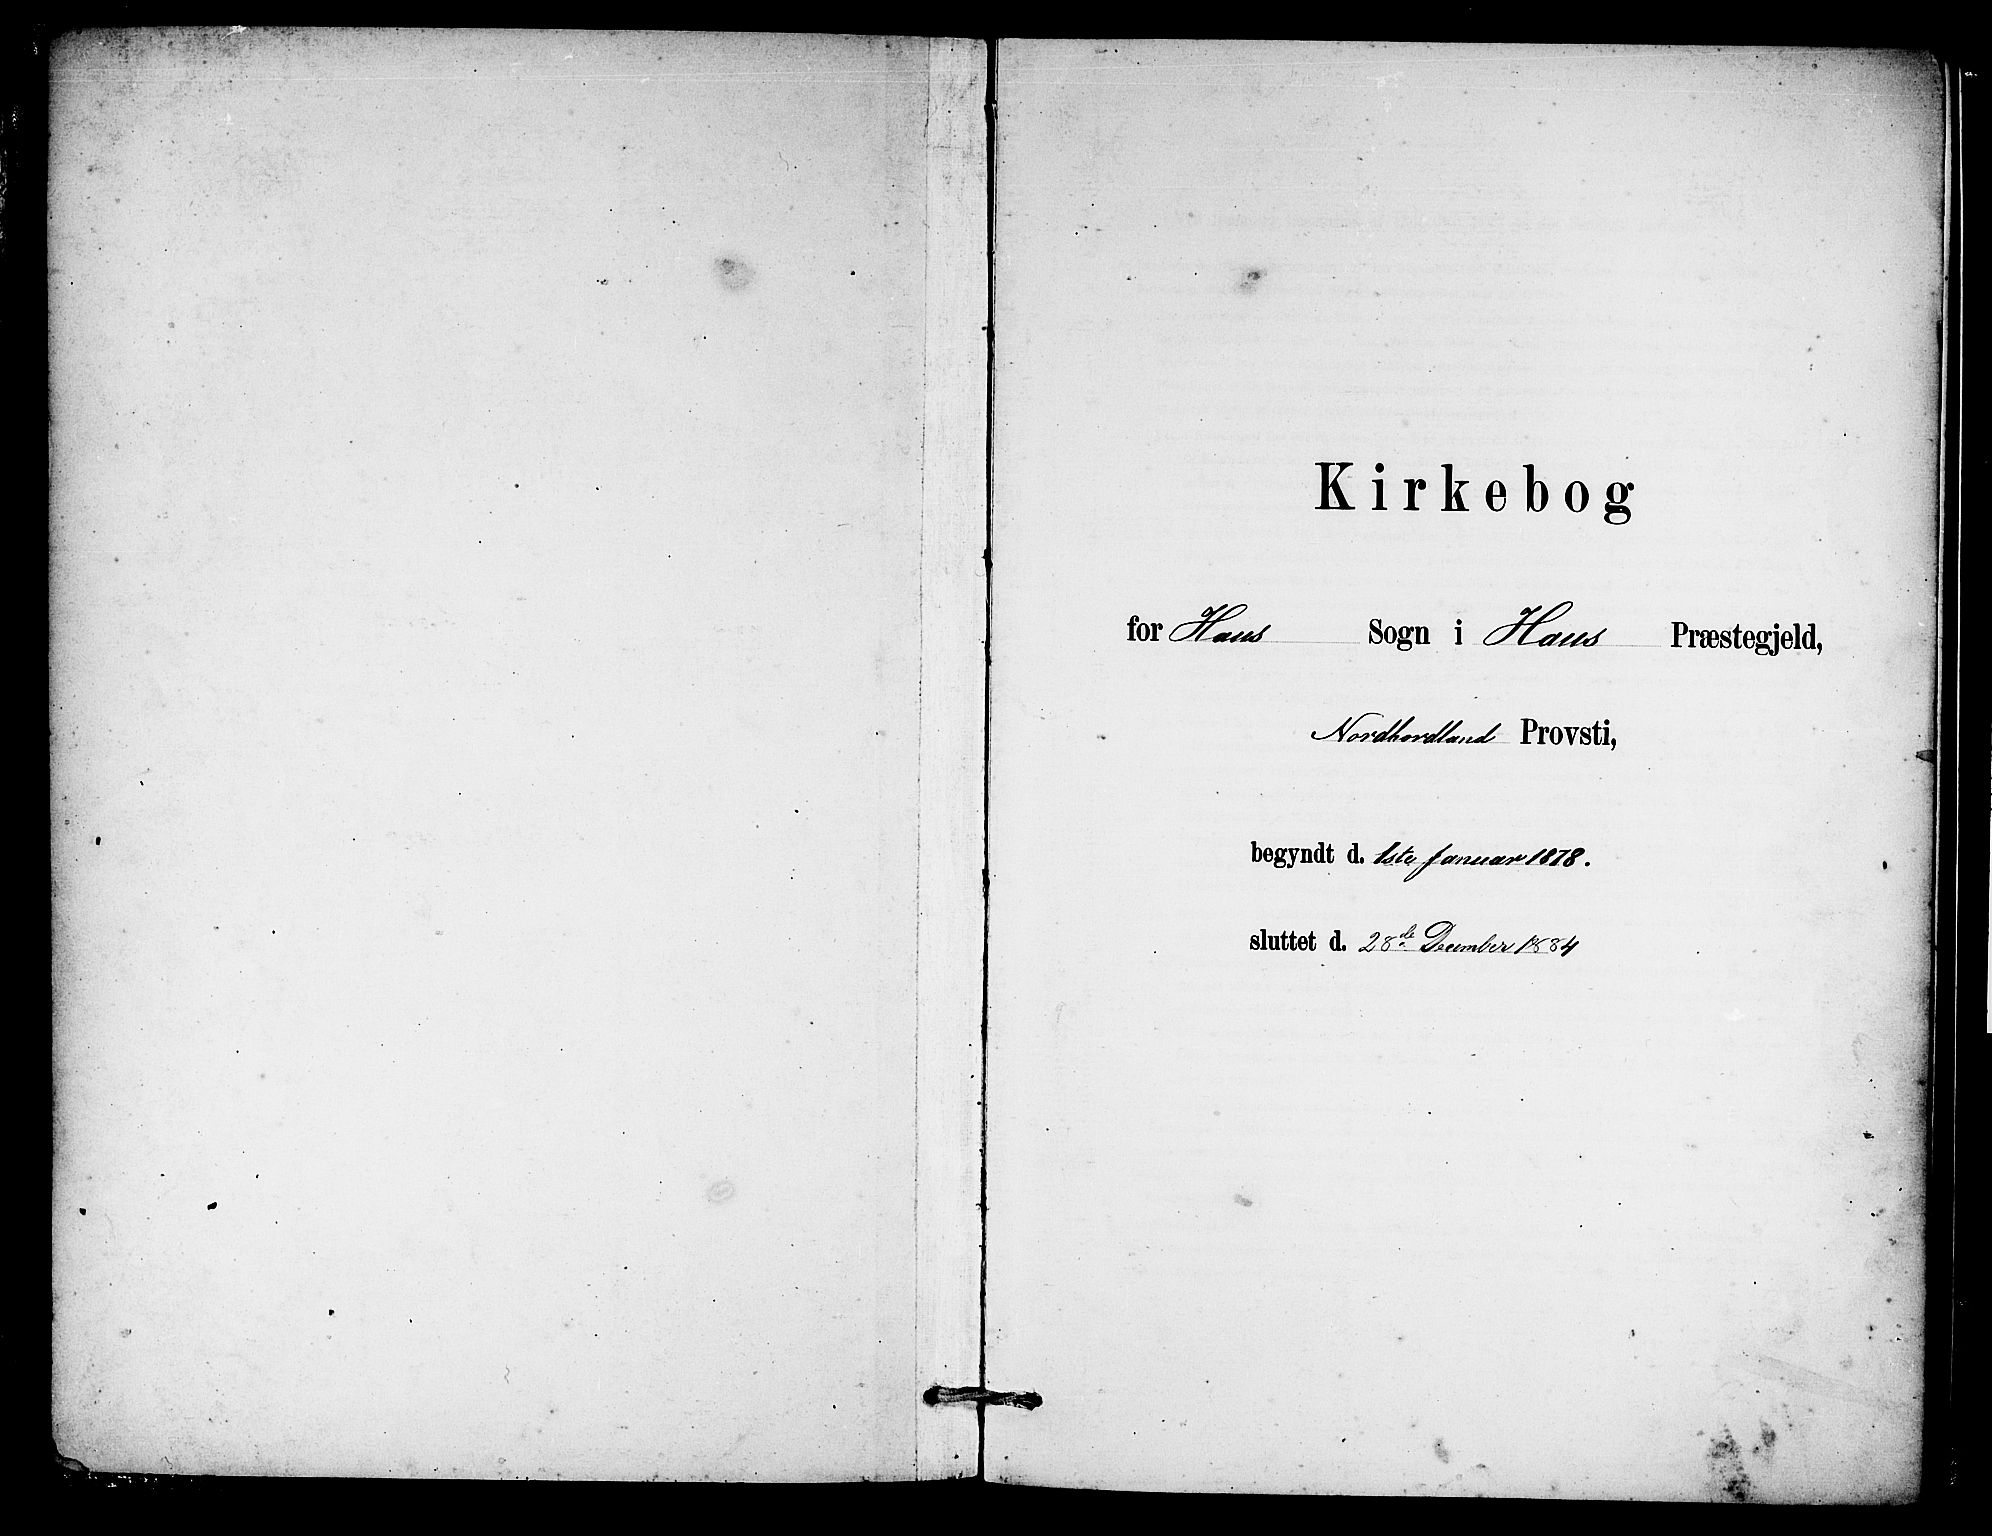 Kirkebog
for Haus Sogn i Haus Præstegjeld,
Nordhordland Provsti,
begyndt d. 1ste Januar 1878.
sluttet d. 28de December 1884